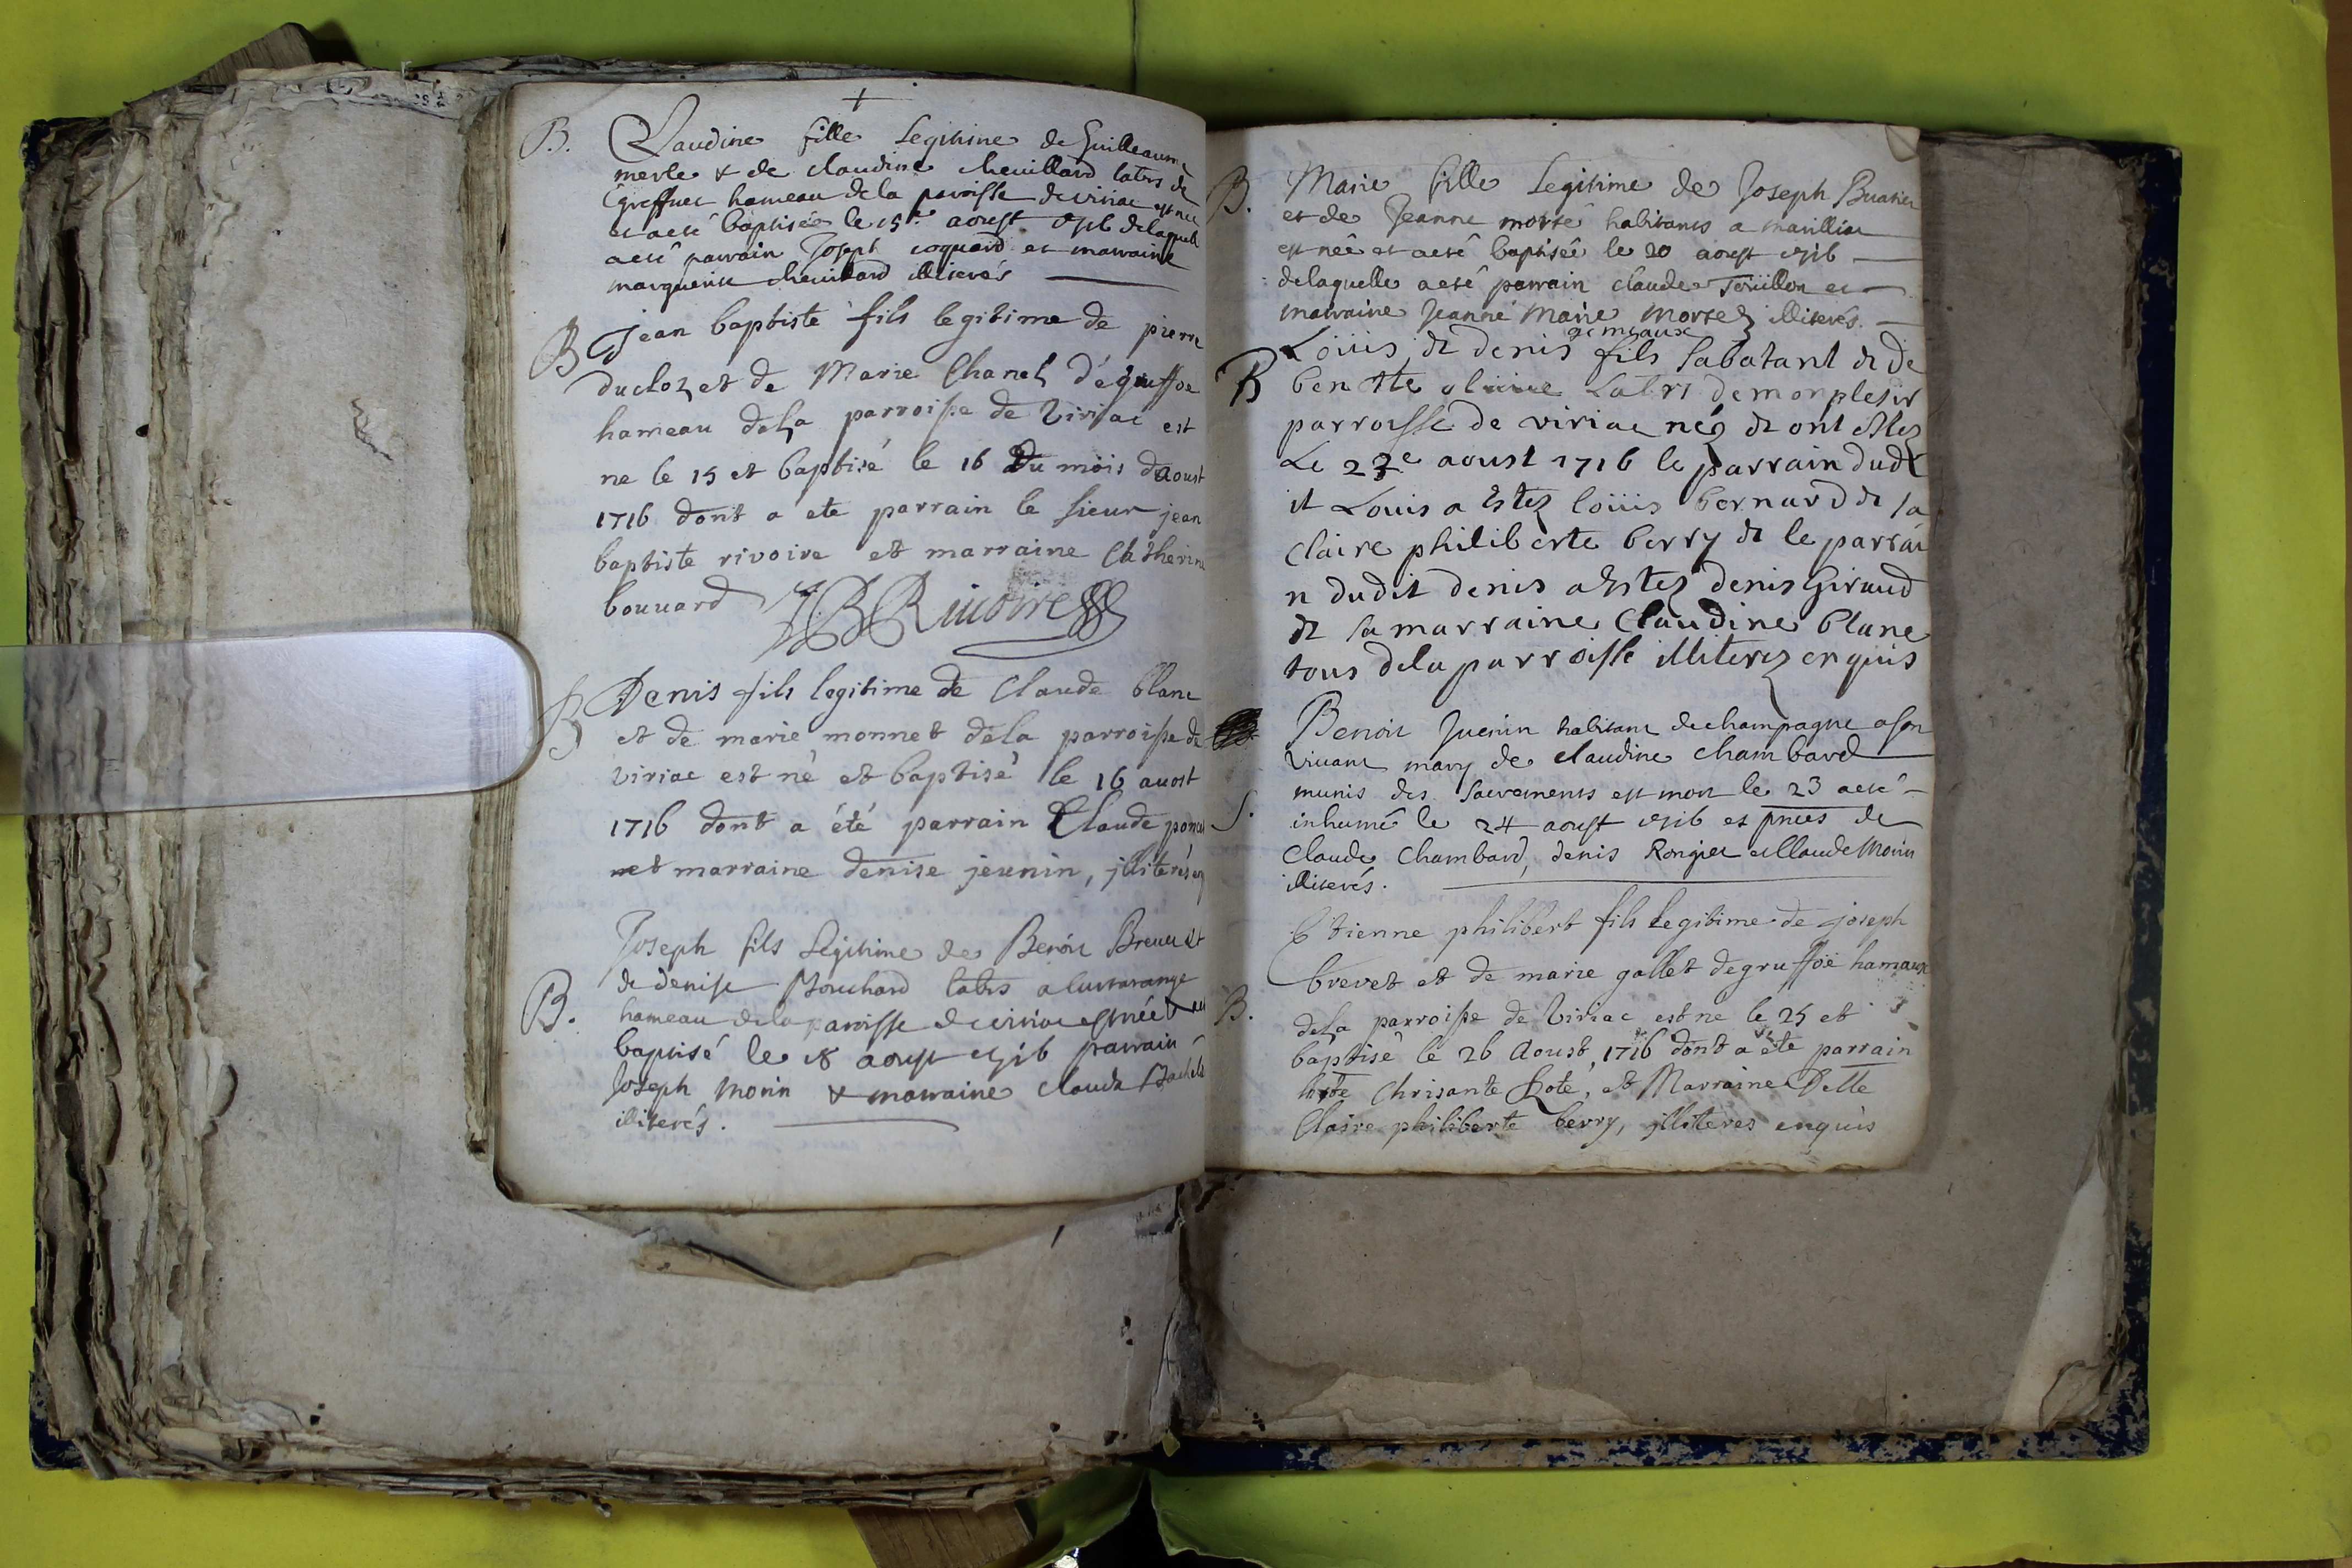 +
B. Claudine fille Legitime de Guilleaume
merle & de claudine cheuillard labrs de
greffuet hameau de la paroisse de viriac est née
et a eté baptiséé le 15e aoust 1716 de laquelle
a eté parrain Joseph coquard et marraine
marguerite cheuillard illiterés
B Jean baptiste fils legitime de pierre
ducloz et de Marie Chanel d'égruffoe
hameau de La parroisse de Viriac est
ne le 15 et baptisé le 16 Du mois daoust
1716 dont a ete parrain le sieur jean
baptiste rivoire et marraine Catherine
bouuard JB Riuoire
B Denis fils legitime de Claude blanc
et de marie monnet dela parroisse de
viriac est né et baptisé le 16 auost
1716 dont a été parrain Claude
et marraine denise jeunin, jlliterés
Joseph fils Legitime de Benoit Breuet
B. & denise Bouchard labrs a
hameau dela paroisse de viriac est né et
baptisé le 18 aoust 1716 parrain
Joseph Morin & marraine claude
illiterés.
B. Marie fille Legitime de Joseph Buatier
et de Jeanne morté habitants a marilliat
est néé et a eté baptiséé le 20 aoust 1716
de laquelle a eté parrain claude Teruillon et
marraine Jeanne Marie Mortez illiterés.
gemeaux
B Loüis & denis fils Sabatant & de
ben tte oliuie Labrs de monplesir
parroisse de viriac nés & ont estez
Le 22e aoust 1716 le parrain dud
it Louis a Estez loüis bernard & sa
Claire philiberte berry & le parrai
n dudit denis a Estez denis Giraud
& sa marraine Claudine blanc
tous de la parroisse illiterez enquis
Benoit Juenin habitant de champagne a son
viuant mary de claudine chambard
munis des Sacrements est mort le 23 a eté
S. inhumé le 24 aoust 1716 es pnces de
Claude Chambard, denis Rongier et Claude Morin
illiterés.
Etienne philibert fils legitime de joseph
brevet et de marie gallet degruffoë hamaux
B. de La parroisse de Viriac est ne le 25 et
baptisé le 26 Aoust 1716 dont a ete parrain
Chrisante Loté, et Marraine Delle
Claire philiberte berry, jlliteres enquis